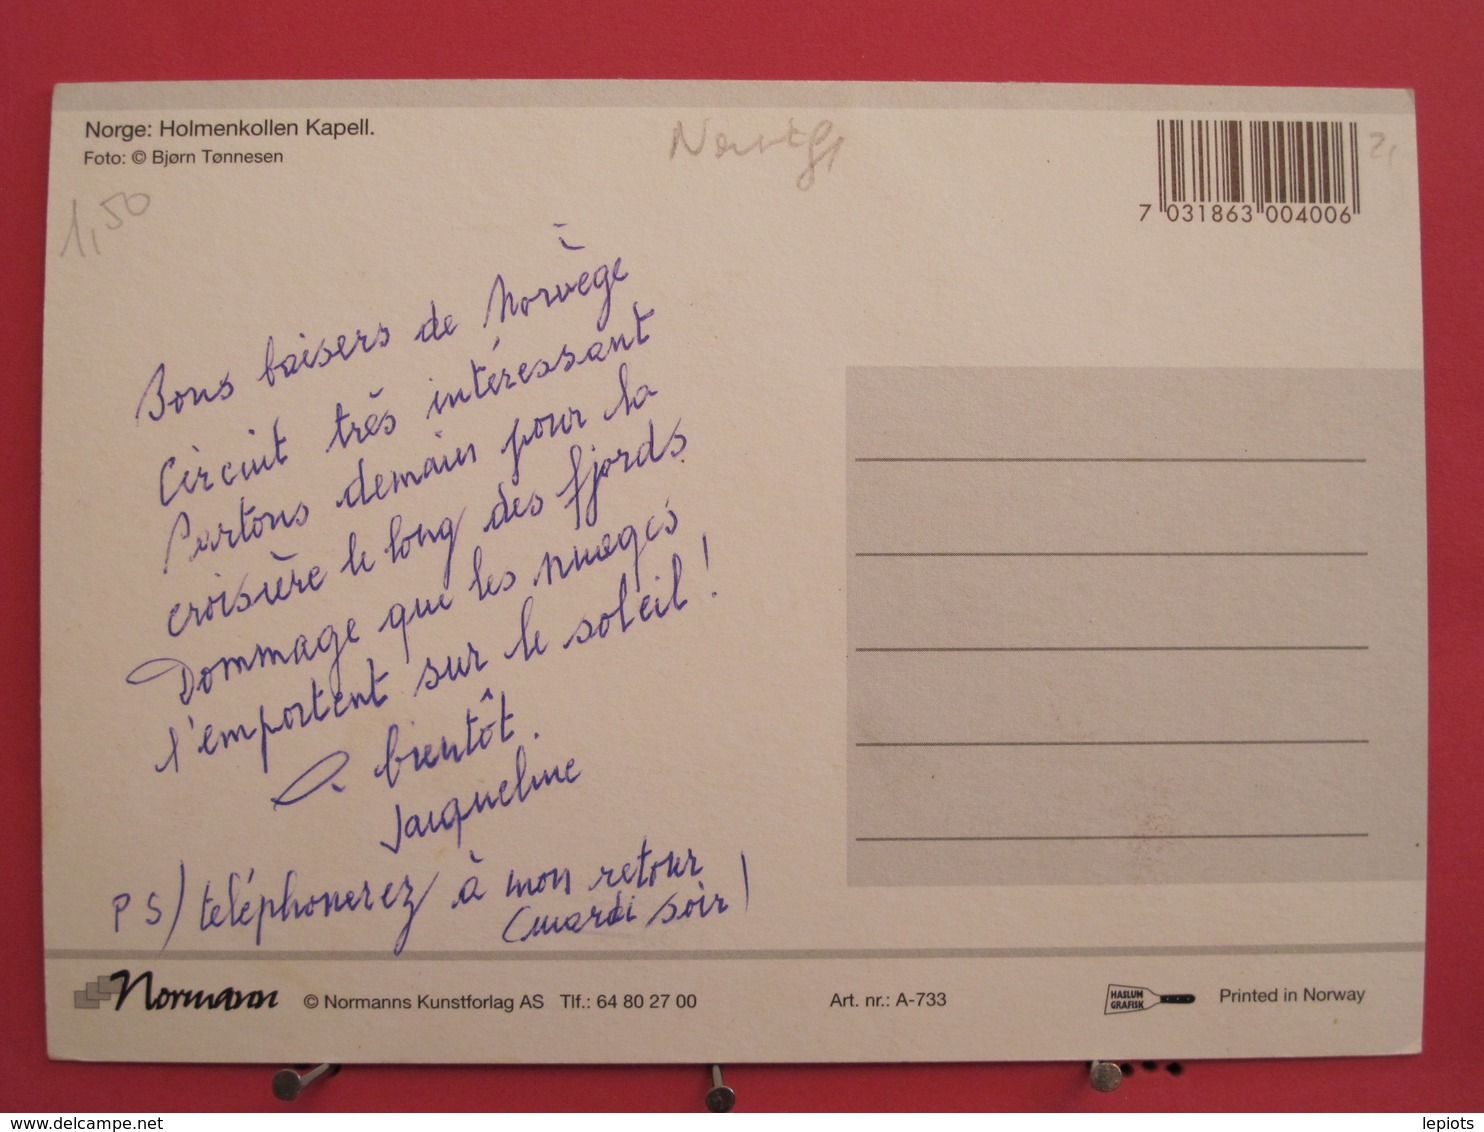 Norge: Holmenkollen Kapell.
Foto: © Bjørn Tønnesen
1,50
7 031863 004006
Bons baisers de Norvège
Circuit très intéressant
Partons demain pour la
croisière le long des fjords.
Dommage que les nuages
l'emportent sur le soleil !
A bientôt.
Jacqueline
PS) téléphonerez à mon retour
(mardi soir)
Normann
© Normanns Kunstforlag AS Tlf.: 64 80 27 00
Art. nr.: A-733
HASLUM
GRAFISK
Printed in Norway
delcampe.net
lepiots